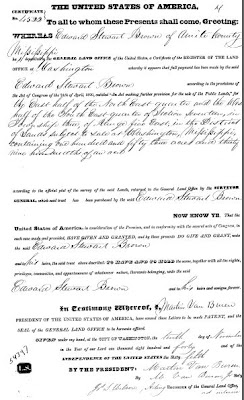 THE UNITED STATES OF AMERICA,
To all to whom these Presents shall come, Greeting:
WHEREAS Edward Stewart Brown of Amite County
Mississippi
GENERAL LAND OFFICE of the United States, a Certificate of the REGISTER OF THE LAND
OFFICE at Washington whereby it appears that full payment has been made by the said
Edward Stewart Brown
according to the provisions of
the Act of Congress of the 24th of April, 1820, entitled "An Act making further provision for the sale of the Public Lands," for
the East half of the North East quarter and the West
half of the South East quarter of Section seventeen, in
Township three, of Range five East, in the District
of Lands subject to sale at Washington, Mississippi,
containing one hundred and fifty three acres and thirty
nine hundredths of an acre
according to the official plat of the survey of the said Lands, returned to the General Land Office by the SURVEYOR
GENERAL, which said tract has been purchased by the said Edward Stewart
Brown
NOW KNOW YE, That the
United States of America, in consideration of the Premises, and in conformity with the several acts of Congress, in
such case made and provided, HAVE GIVEN AND GRANTED, and by these presents DO GIVE AND GRANT, unto
the said Edward Stewart Brown
and to his heirs, the said tract above described: TO HAVE AND TO HOLD the same, together with all the rights,
privileges, immunities, and appurtenances of whatsoever nature, thereunto belonging, unto the said
Edward Stewart Brown
and to his heirs and assigns forever.
In Testimony Whereof, I, Martin Van Buren
PRESIDENT OF THE UNITED STATES OF AMERICA, have caused these Letters to be made PATENT, and the
SEAL of the GENERAL LAND OFFICE to be hereunto affixed.
GIVEN under my hand, at the CITY OF WASHINGTON, the tenth day of November
in the Year of our Lord one thousand eight hundred and forty and of the
INDEPENDENCE OF THE UNITED STATES the Sixty fifth
BY THE PRESIDENT: Martin Van Buren
By M. Van Buren, Jr. Sec'y.
Recorder of the General Land Office,
L.S.